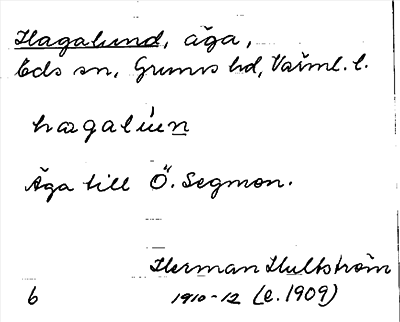 Hagalund, äga,
Eds sn, Grums hd, Värml. l.
hagalún
Äga till Ö. Segmon.
Herman Hultström
6 1910-12 (e. 1909)